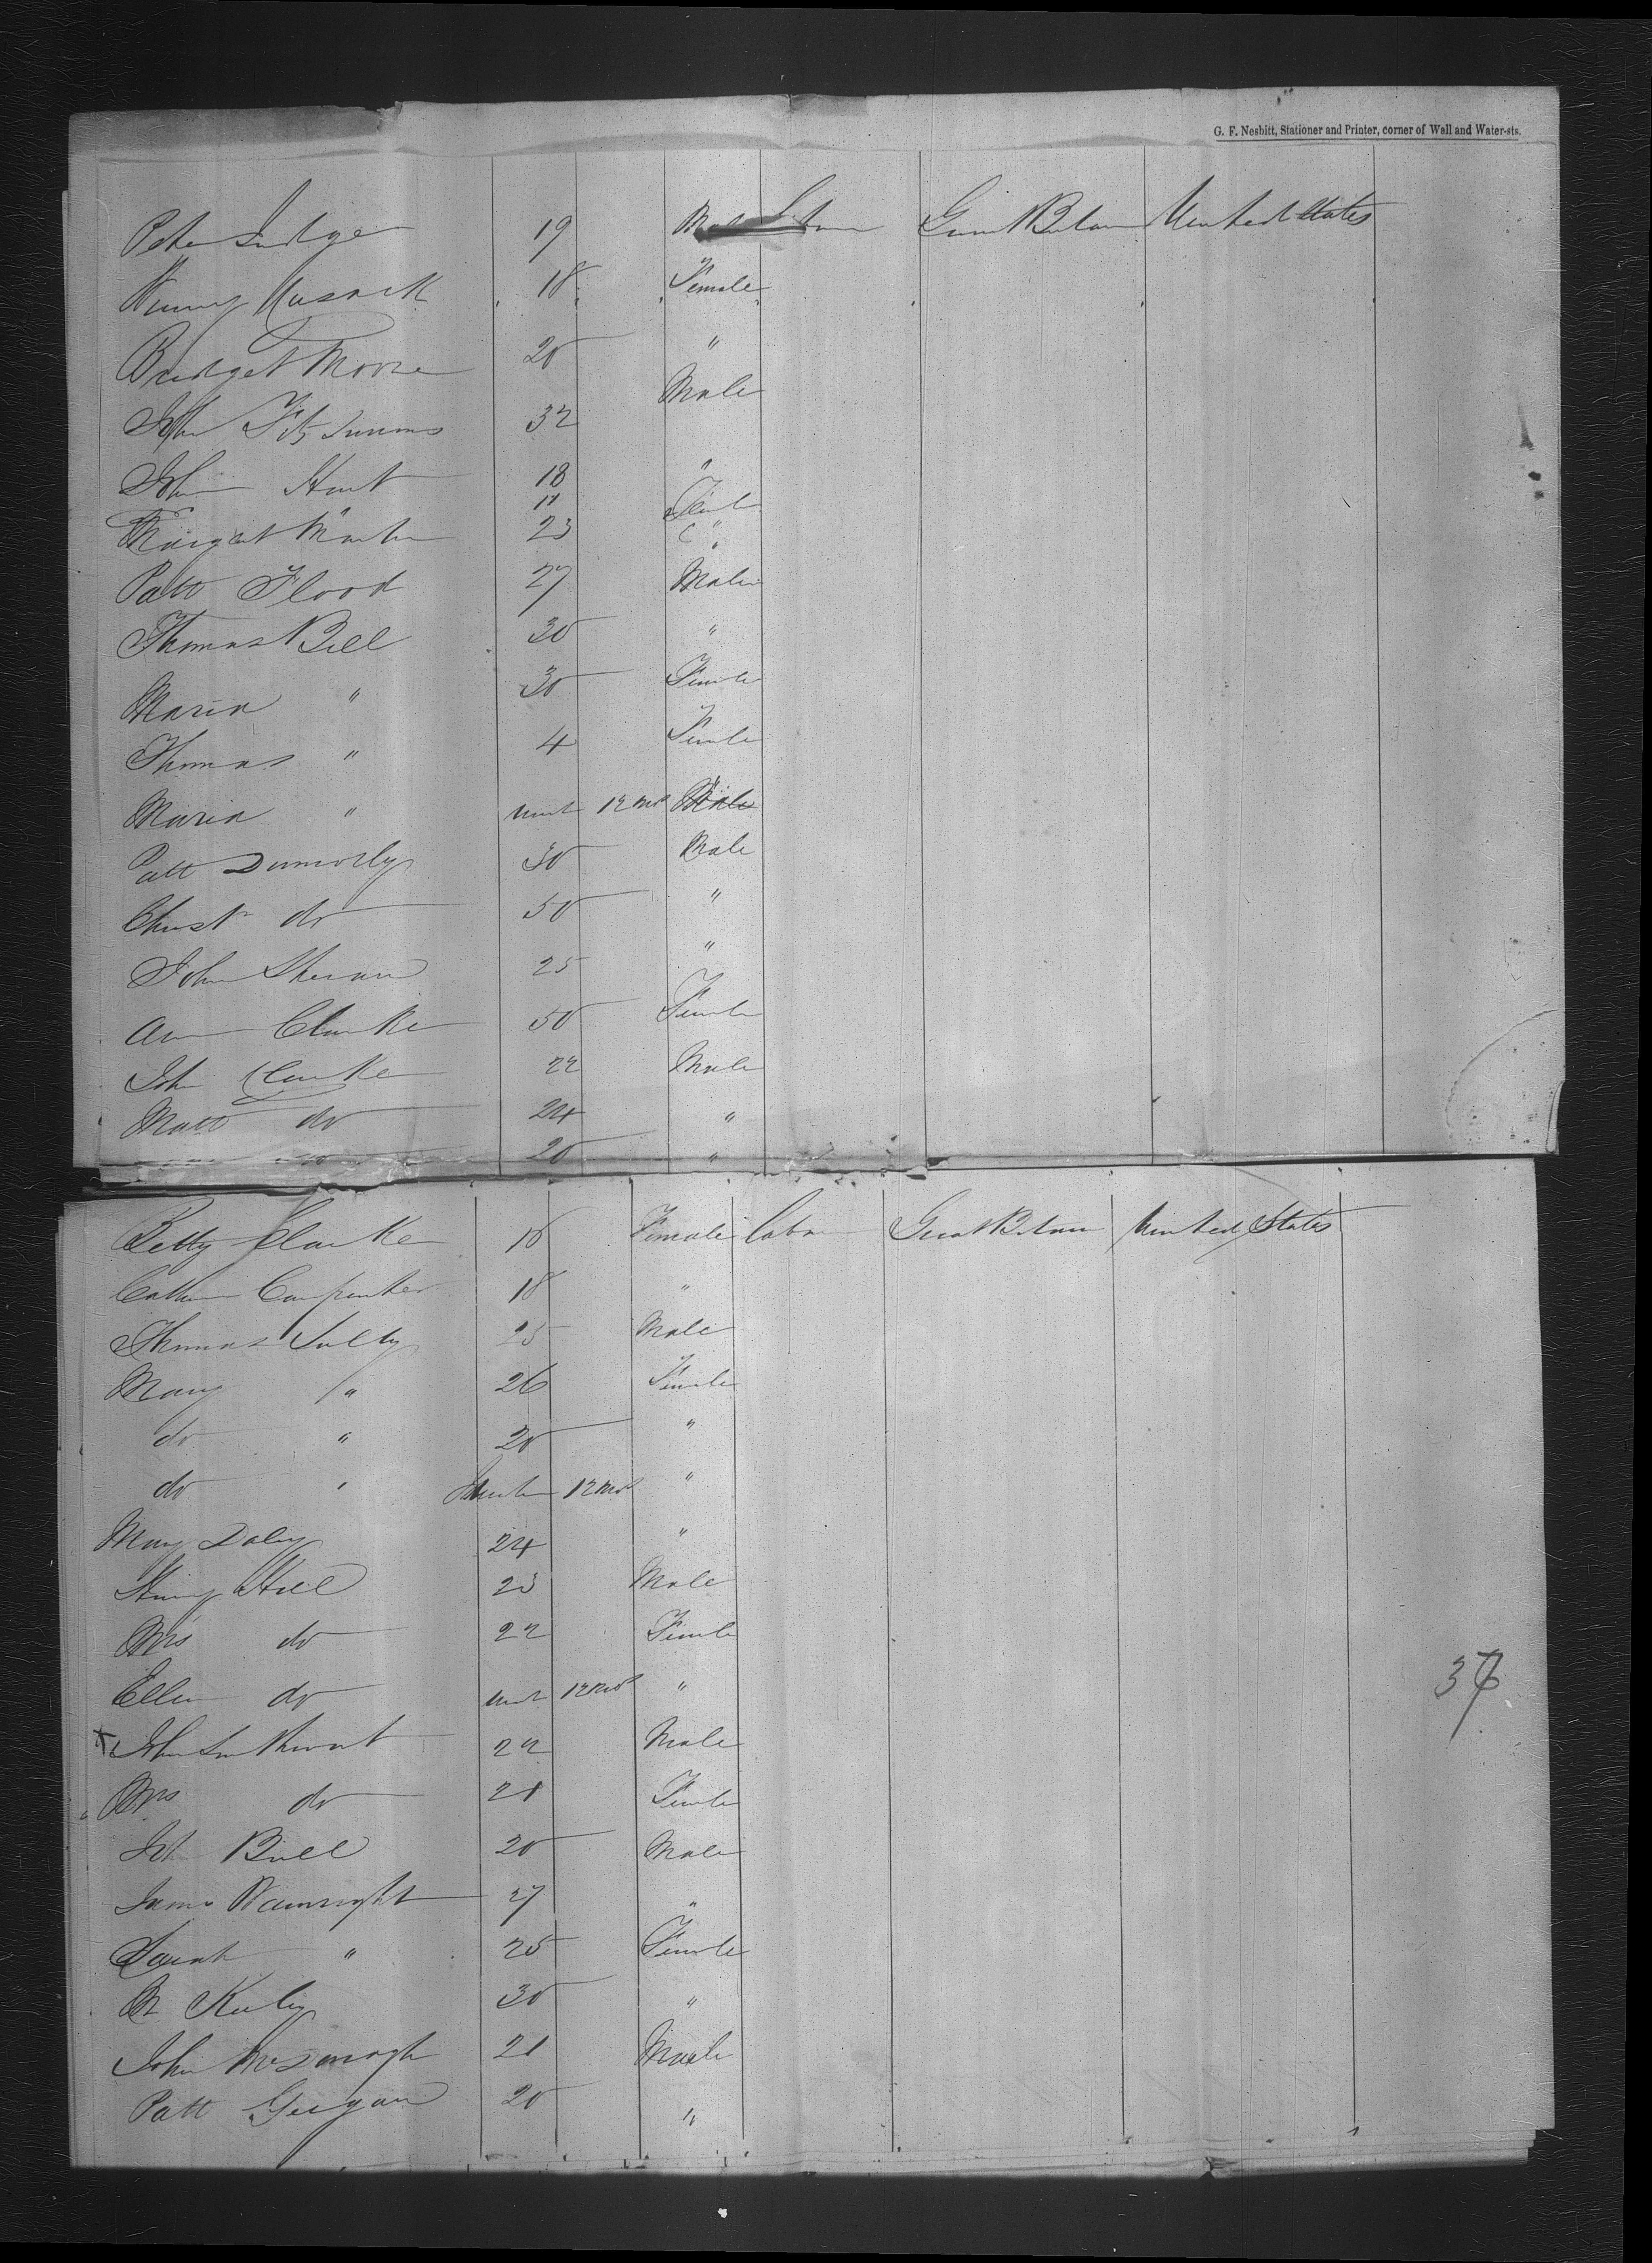 G. F. Nesbitt, Stationer and Printer, corner of Wall and Water-sts.
Peter Judge 19 Male Labour Great Britain United States
18 Female
Bridget Moore 20 "
John Fitzsimons 32 Male
John Hart 18 "
" 11 Female
Margaret Martin 23 "
Patt Flood 27 Male
Thomas Bell 30 "
Maria " 30 Female
Thomas " 4 Female
Maria " 12 mos Male
Patt Donnolly 30 Male
Christ do 50 "
John Sheran 25 "
Ann Clarke 50 Female
John Clarke 22 Male
Matt do 24 "
20 "
Betty Clarke 16 Female Labour Great Britain United States
Cathn Carpenter 18 "
Thomas Sully 25 Male
Mary " 26 Female
do " 20 "
do " 12 mos "
Mary Daly 24 "
Henry Hill 23 Male
Mrs do 22 Female
Ellen do 12 mos "
x John 22 Male
Mrs do 21 Female
Bull 20 Male
James Wainwright 27 "
Sarah " 25 Female
Keely 30 "
John McDonogh 21 Male
Patt Geegan 20 "